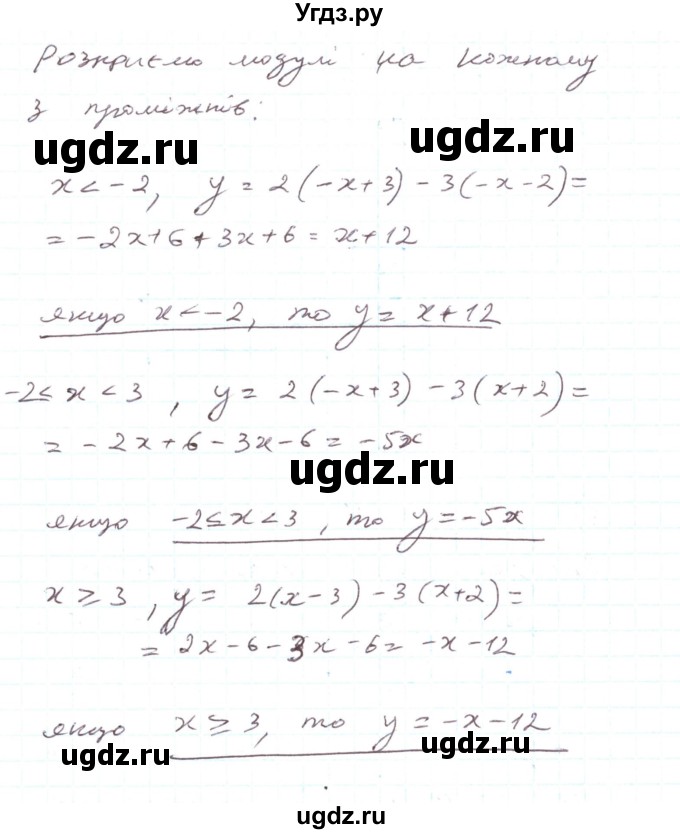 Угдз.ру
Розкриємо модулі на кожному
з проміжків:
ugdz.ru ugdz.ru
x < -2, y = 2(-x+3) - 3(-x-2) =
= -2x+6+3x+6 = x+12
якщо x < -2, то y = x+12
-2 ≤ x < 3 , y = 2(-x+3) - 3(x+2) =
= -2x+6-3x-6 = -5x
ugdz.ru
якщо -2 ≤ x < 3 , то y = -5x
x ≥ 3 , y = 2(x-3) - 3(x+2) =
= 2x-6-3x-6 = -x-12
якщо x ≥ 3, то y = -x-12
ugdz.ru ugdz.ru
ugdz.ru